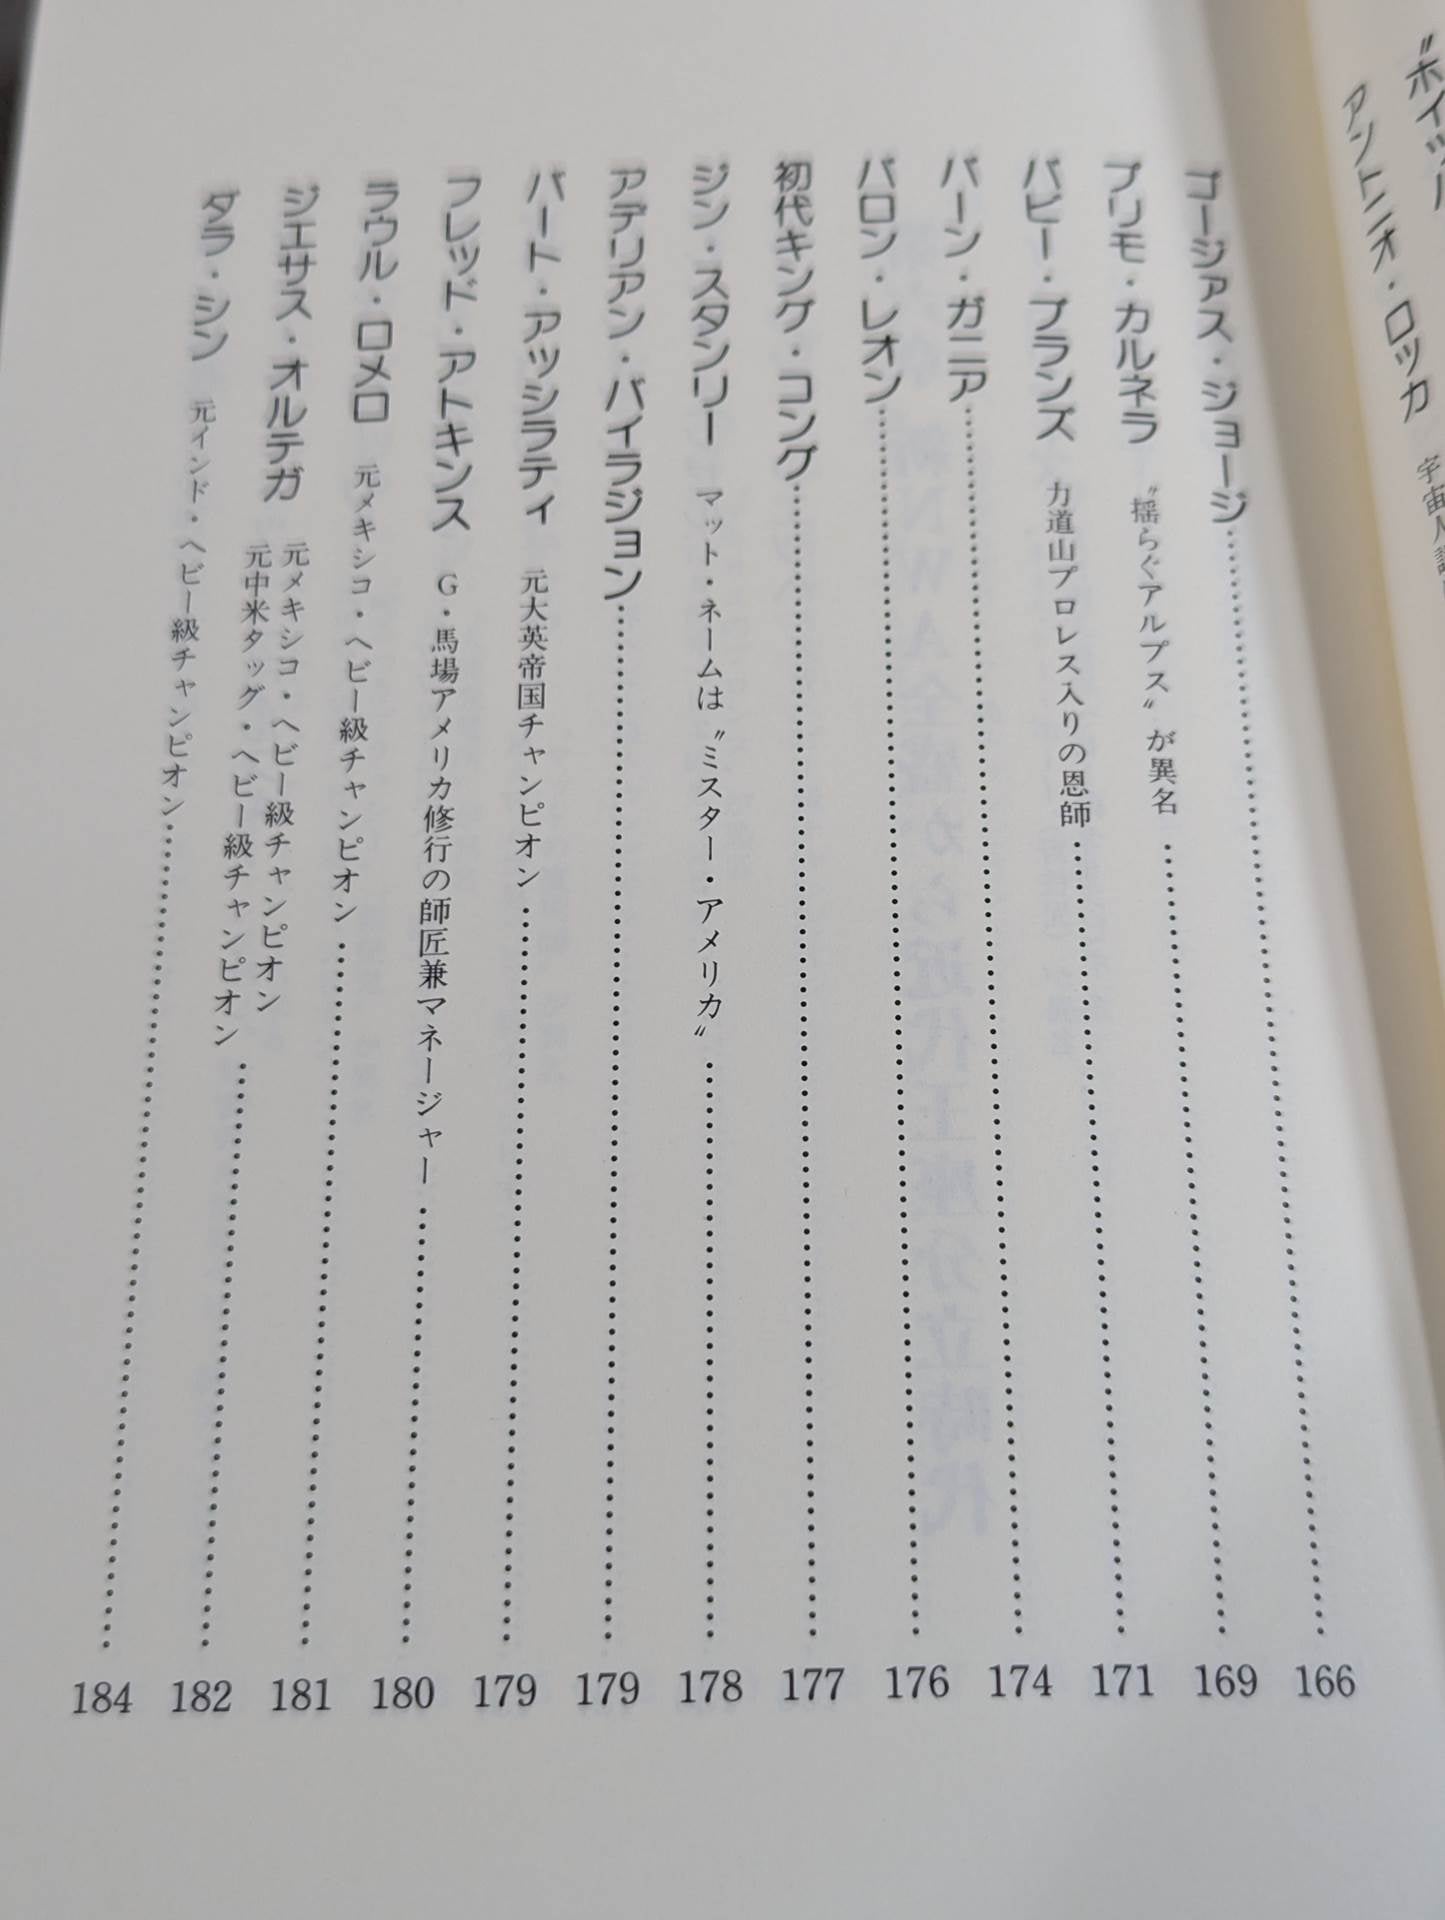 アントニオ・ロッカ
ゴージァス・ジョージ……166
プリモ・カルネラ 〝揺らぐアルプス〟が異名……169
バビー・ブランズ 力道山プロレス入りの恩師……171
バーン・ガニア……174
バロン・レオン……176
初代キング・コング……177
ジン・スタンリー マット・ネームは〝ミスター・アメリカ〟……178
アデリアン・バイラジョン……179
バート・アッシラティ 元大英帝国チャンピオン……179
フレッド・アトキンス G・馬場アメリカ修行の師匠兼マネージャー……180
ラウル・ロメロ 元メキシコ・ヘビー級チャンピオン……181
ジエサス・オルテガ 元メキシコ・ヘビー級チャンピオン
元中米タッグ・ヘビー級チャンピオン……182
ダラ・シン 元インド・ヘビー級チャンピオン……184